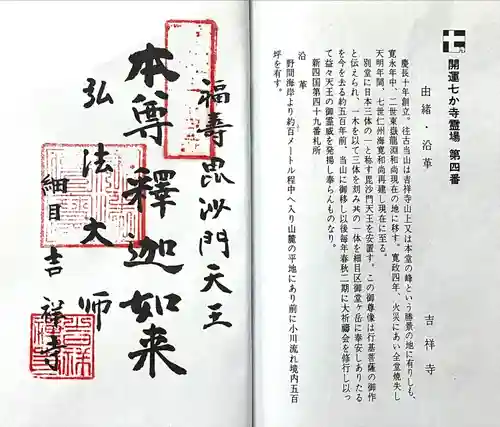 開運七か寺霊場 第四番
由緒・沿革
吉祥寺
慶長十年創立、往古当山は吉祥寺山上又は本堂の峰という勝景の地に有りしも、
寛永年中、二世東嶽龍淵和尚現在の地に移す。寛政四年、火災にあい全堂焼失し
天明年間、七世仁州海寛和尚再建し現在に至る。
別堂に日本三体の一と称す毘沙門天王を安置す。この御尊像は行基菩薩の御作
と伝えられ、一木を以て三体を刻み其の一体を細目区御堂ヶ岳に泰安しありたる
を今を去る約五百年前、当山に御移し以後毎年春秋二期に大祈禱会を修行し以っ
て益々天王の御霊威を発揚し奉らんものなり。
新四国第四十九番札所
沿革
野間海岸より約百メートル程中へ入り山麓の平地にあり前に小川流れ境内五百
坪を有す。
福壽毘沙門天王
本尊 釋迦如来
弘法大師
細目 吉祥寺